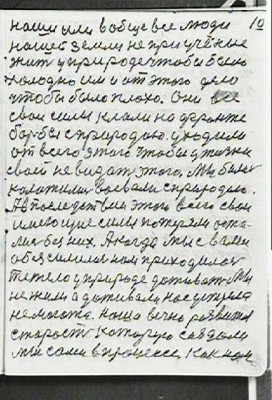 10
нами или вообще все люди
нашей земли не приучёные
жить у природе чтобы было
холодно им и от этого дело
чтобы было плохо. Они все
свои силы клали на фронте
борьбы с природою. уходили
от всего этого чтобы у жизни
своей не видать этого, Мы были
воевали с природою.
А впоследствии этого всего свои
имеющие силы потеряли оста
лись без них. А когда мы с вами
обессилели нам приходилося
тяжело у природе доживать. Мы
не жили а доживали нас
немогота. наша вечно развитая
старость которую создали
мы сами в процессе. Как нам